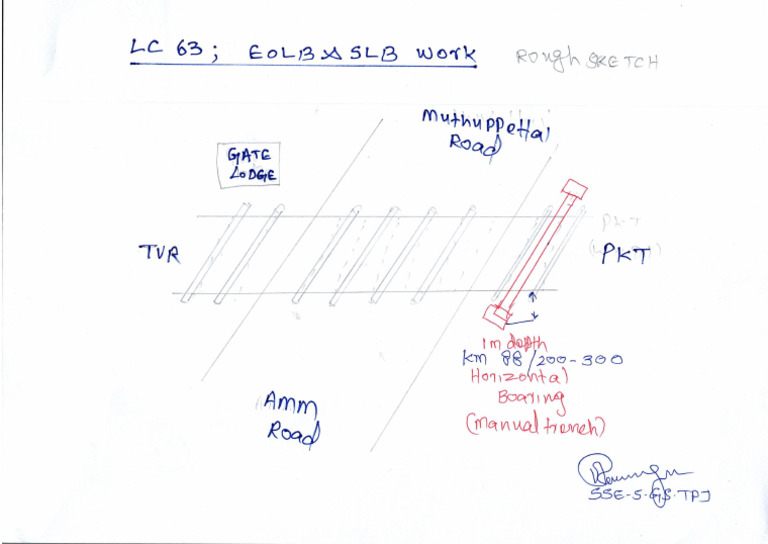 LC 63; EOLB & SLB WORK
Rough SKETCH
Muthuppettai
Road
GATE
LODGE
TVR
PKT
PKT
1m depth
KM 88/200-300
Horizontal
Boaring
(Manual trench)
AMM
Road
SSE-S.GS.TPJ